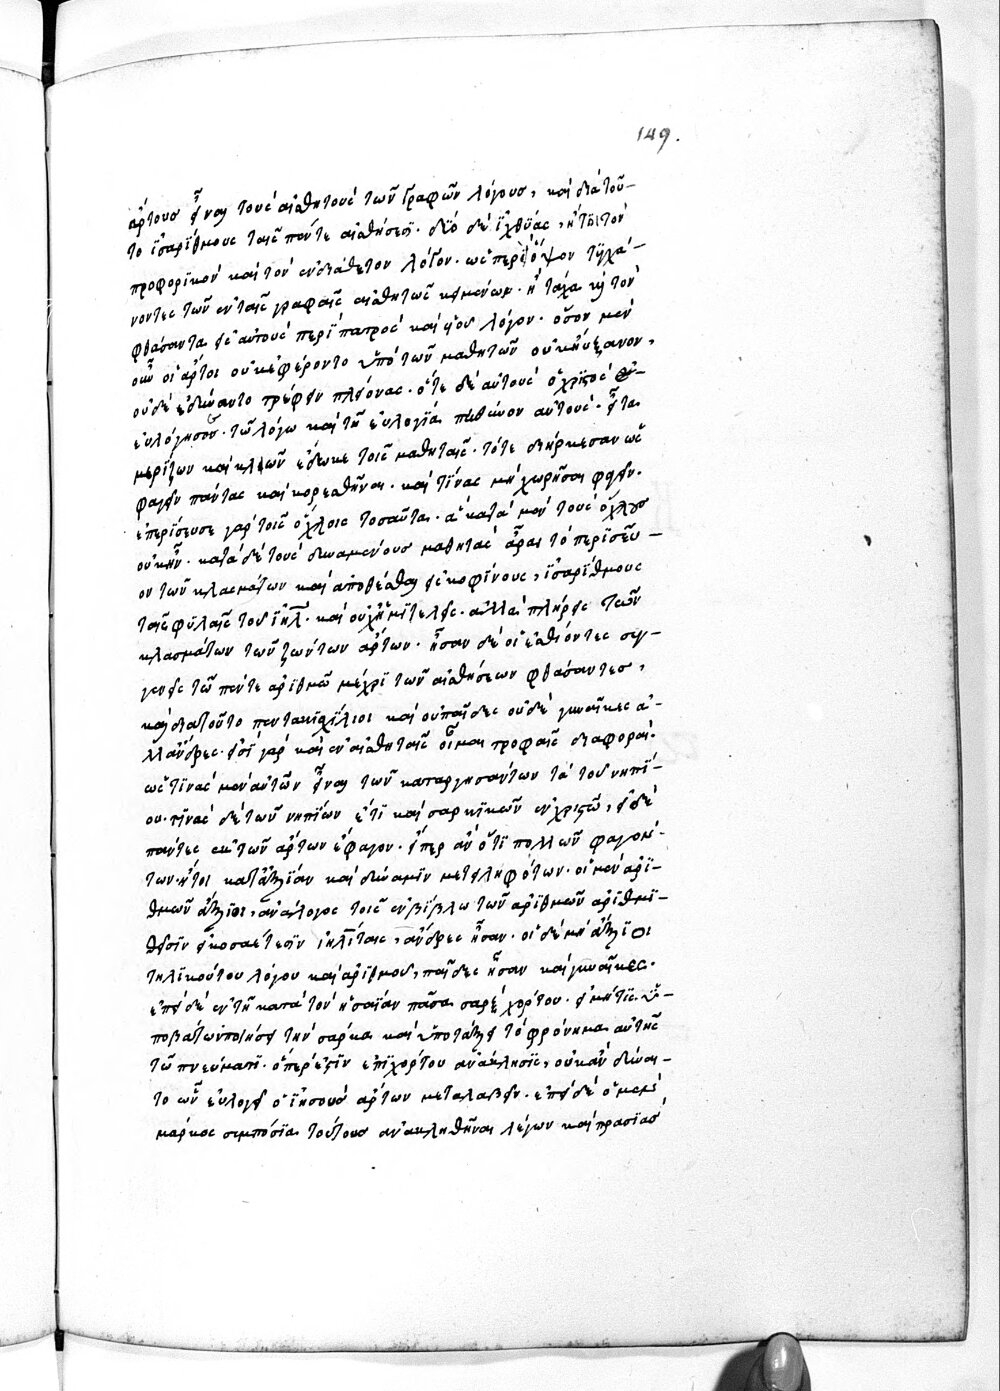 149.
ἄρτους εἶναι τοὺς αἰσθητοὺς τῶν Γραφῶν λόγους, καὶ διὰ τοῦ-
το ἰσαρίθμους ταῖς πέντε αἰσθήσεσι. δύο δὲ ἰχθύας, ἤτοι τὸν
προφορικὸν καὶ τὸν ἐνδιάθετον λόγον. ὡσπερεὶ ὄψον τυγχά-
νοντες τῶν ἐν ταῖς γραφαῖς αἰσθητῶς κειμένων. ἢ τάχα καὶ τὸν
φθάσαντα εἰς αὐτοὺς περὶ πατρὸς καὶ υἱοῦ λόγον. ὅσον μὲν
οὖν οἱ ἄρτοι οὐκ ἐφέροντο ὑπὸ τῶν μαθητῶν οὐκ ηὔξανον,
οὐδὲ ἐδύναντο τρέφειν πλείονας. ὅτε δὲ αὐτοὺς ὁ χριστὸς
εὐλόγησεν. τῷ λόγῳ καὶ τῇ εὐλογίᾳ αὐτούς. εἶτα
μερίζων καὶ κλῶν ἔδωκε τοῖς μαθηταῖς. τότε διήρκεσαν ὡς
φαγεῖν πάντας καὶ κορεσθῆναι. καὶ τινὰς μὴ χωρῆσαι φαγεῖν.
ἐπερίσευσε γὰρ τοῖς ὄχλοις τοσαῦτα. ἃ κατὰ μὲν τοὺς ὄχλους
οὐκ ἦν. κατὰ δὲ τοὺς δυναμένους μαθητὰς ἆραι τὸ περισεῦ-
ον τῶν κλασμάτων καὶ ἀποθέσθαι εἰς κοφίνους, ἰσαρίθμους
ταῖς φυλαῖς τοῦ ἰηλ. καὶ οὐχ ἡμιτελεῖς. ἀλλὰ πλήρεις τῶν
κλασμάτων τῶν ζώντων ἄρτων. ἦσαν δὲ οἱ ἐσθίοντες συγ-
γενεῖς τῷ πέντε ἀριθμῷ μέχρι τῶν αἰσθήσεων φθάσαντες,
καὶ διὰ τοῦτο πεντακιχίλιοι καὶ οὐ παῖδες οὐδὲ γυναῖκες ἀ-
λλ' ἄνδρες. εἰσὶ γὰρ καὶ ἐν αἰσθηταῖς οἶμαι τροφαῖς διαφοραὶ.
ὡς τινὰς μὲν αὐτῶν εἶναι τῶν καταργησάντων τὰ τοῦ νηπί-
ου. τινὰς δὲ τῶν νηπίων ἔτι καὶ σαρκικῶν ἐν χριστῷ, εἰ δὲ
πάντες ἐκ τῶν ἄρτων ἔφαγον. ὑπὲρ ἂν ὅτι πολλῶν φαγόν-
των. ἤτοι κατ' ἀξίαν καὶ δύναμιν μετειληφότων. οἱ μὲν ἀρι-
θμῶν ἄξιοι, ἀνάλογος τοῖς ἐν βίβλῳ τῶν ἀριθμῶν ἀριθμη-
θεῖσιν εἰκοσαέτεσιν ἰηλίταις, ἄνδρες ἦσαν. οἱ δὲ μὴ ἄξιοι
τηλικούτου λόγου καὶ ἀριθμοῦ, παῖδες ἦσαν καὶ γυναῖκες.
ἐπεὶ δὲ ἐν τῇ κατὰ τὸν ἡσαΐαν πᾶσα σὰρξ χόρτου. εἰ μή τις ὑ-
ποβάτων ποιήσει τὴν σάρκα καὶ ὑποτάξει τὸ φρόνημα αὐτῆς
τῷ πνεύματι. ὅπερ ἐστὶν ἐπὶ χόρτου ἀνάκλησις, οὐκ ἂν δύναι-
το ὧν εὐλογεῖ ὁ ἰησοῦς ἄρτων μεταλαβεῖν. ἐπεὶ δὲ ὁ μὲν
μάρκος συμπόσια τούτους ἀνακληθῆναι λέγων καὶ πρασιὰς